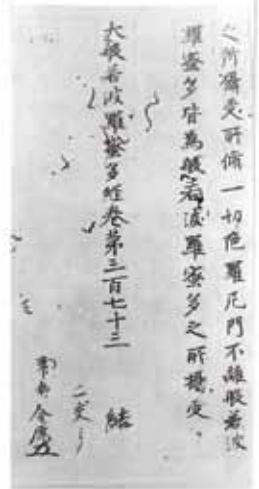 之所攝受所脩一切陁羅尼門不離般若波
羅蜜多皆為般若波羅蜜多之所攝受。
大般若波羅蜜多經卷第三百七十三
結
二交了